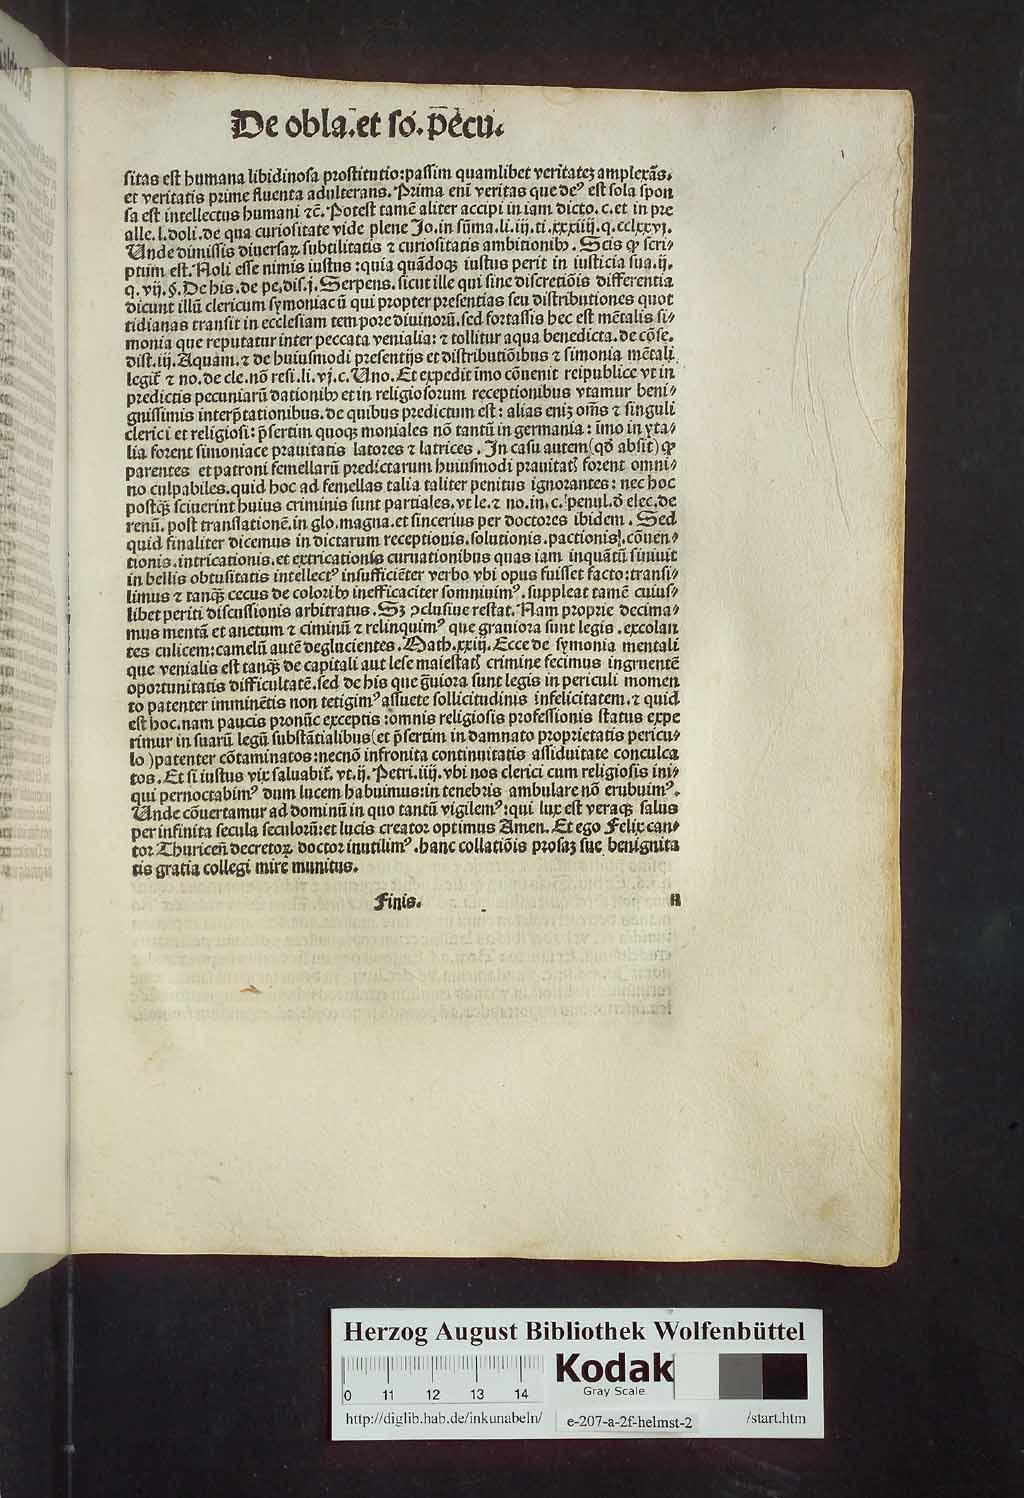 De obla᷒.et so᷒.pēcu.
sitas est humana libidinosa prostitutio:passim quamlibet veritateʒ amplexãs.
et veritatis prime fluenta adulterans. Prima enī veritas que deꝰ est sola spon
sa est intellectus humani ⁊c̄. Potest tamē aliter accipi in iam dicto.c.et in pre
alle.l.doli.de qua curiositate vide plene Jo.in sūma.li.iij.ti.xxxiiij.q.cclxxvj.
Unde dimissis diuersaꝝ subtilitatis ⁊ curiositatis ambitionibꝫ. Scis ꝙ scri⸗
ptum est. Noli esse nimis iustus:quia quãdoqꝫ iustus perit in iusticia sua.ij.
q.vij.§.De his.de pe.dis.j.Serpens.sicut ille qui sine discretiōis differentia
dicunt illū clericum symoniacū qui propter presentias seu distributiones quot
tidianas transit in ecclesiam tempore diuinorū.sed fortassis hec est mētalis si⸗
monia que reputatur inter peccata venialia:⁊ tollitur aqua benedicta.de cōse.
dist.iij.Aquam.⁊ de huiusmodi presentijs et distributiōibus ⁊ simonia mētali
legit᷑ ⁊ no.de cle.nō resi.li.vj.c.Uno.Et expedit īmo cōuenit reipublice vt in
predictis pecuniarū dationibꝫ et in religiosorum receptionibus vtamur beni⸗
gnissimis interp̄tationibus.de quibus predictum est:alias eniꝫ oms̄ ⁊ singuli
clerici et religiosi:p̄sertim quoqꝫ moniales nō tantū in germania:īmo in yta⸗
lia forent simoniace prauitatis latores ⁊ latrices. In casu autem(qd̄ absit)ꝙ
parentes et patroni femellarū predictarum huiusmodi prauitatꝭ forent omni⸗
no culpabiles.quid hoc ad femellas talia taliter penitus ignorantes:nec hoc
postqꝫ̄ sciuerint huius criminis sunt partiales.vt le.⁊ no.in.c.penul.d̄ elec.de
renū.post translationē.in glo.magna.et sincerius per doctores ibidem. Sed
quid finaliter dicemus in dictarum receptionis.solutionis.pactionisꝭ.cōuen⸗
tionis.intricationis.et extricationis curuationibus quas iam inquãtū siniuit
in bellis obtusitatis intellectꝰ insufficiēter verbo vbi opus fuisset facto:transi⸗
limus ⁊ tanqꝫ̄ cecus de coloribꝫ inefficaciter somniuimꝰ.suppleat tamē cuius⸗
libet periti discussionis arbitratus. Sꝫ ꝯclusiue restat. Nam proprie decima⸗
mus mentã et anetum ⁊ ciminū ⁊ relinquimꝰ que grauiora sunt legis.excolan
tes culicem:camelū autē deglucientes. Math.xxiij. Ecce de symonia mentali
que venialis est tanqꝫ̄ de capitali aut lese maiestatꝭ crimine fecimus ingruentē
oportunitatis difficultatē.sed de his que g̃uiora sunt legis in periculi momen
to patenter imminētis non tetigimꝰ assuete sollicitudinis infelicitatem.⁊ quid
est hoc.nam paucis pronūc exceptis:omnis religiosis professionis status expe
rimur in suarū legū substãtialibus(et p̄sertim in damnato proprietatis pericu⸗
lo)patenter cōtaminatos:necnō infronita continuitatis assiduitate conculca
tos. Et si iustus vix saluabit᷑.vt.ij.Petri.iiij.vbi nos clerici cum religiosis ini⸗
qui pernoctabimꝰ dum lucem habuimus:in tenebris ambulare nō erubuimꝰ.
Unde cōuertamur ad dominū in quo tantū vigilemꝰ:qui lux est veraqꝫ salus
per infinita secula seculorū:et lucis creator optimus Amen. Et ego Felix can⸗
tor Thuriceñ decretoꝝ doctor inutilimꝰ.hanc collatiōis prosaꝫ sue benignita
tis gratia collegi mire munitus.
Finis.
Herzog August Bibliothek Wolfenbüttel
0 11 12 13 14
Kodak
Gray Scale
http://diglib.hab.de/inkunabeln/ e-207-a-2f-helmst-2 /start.htm